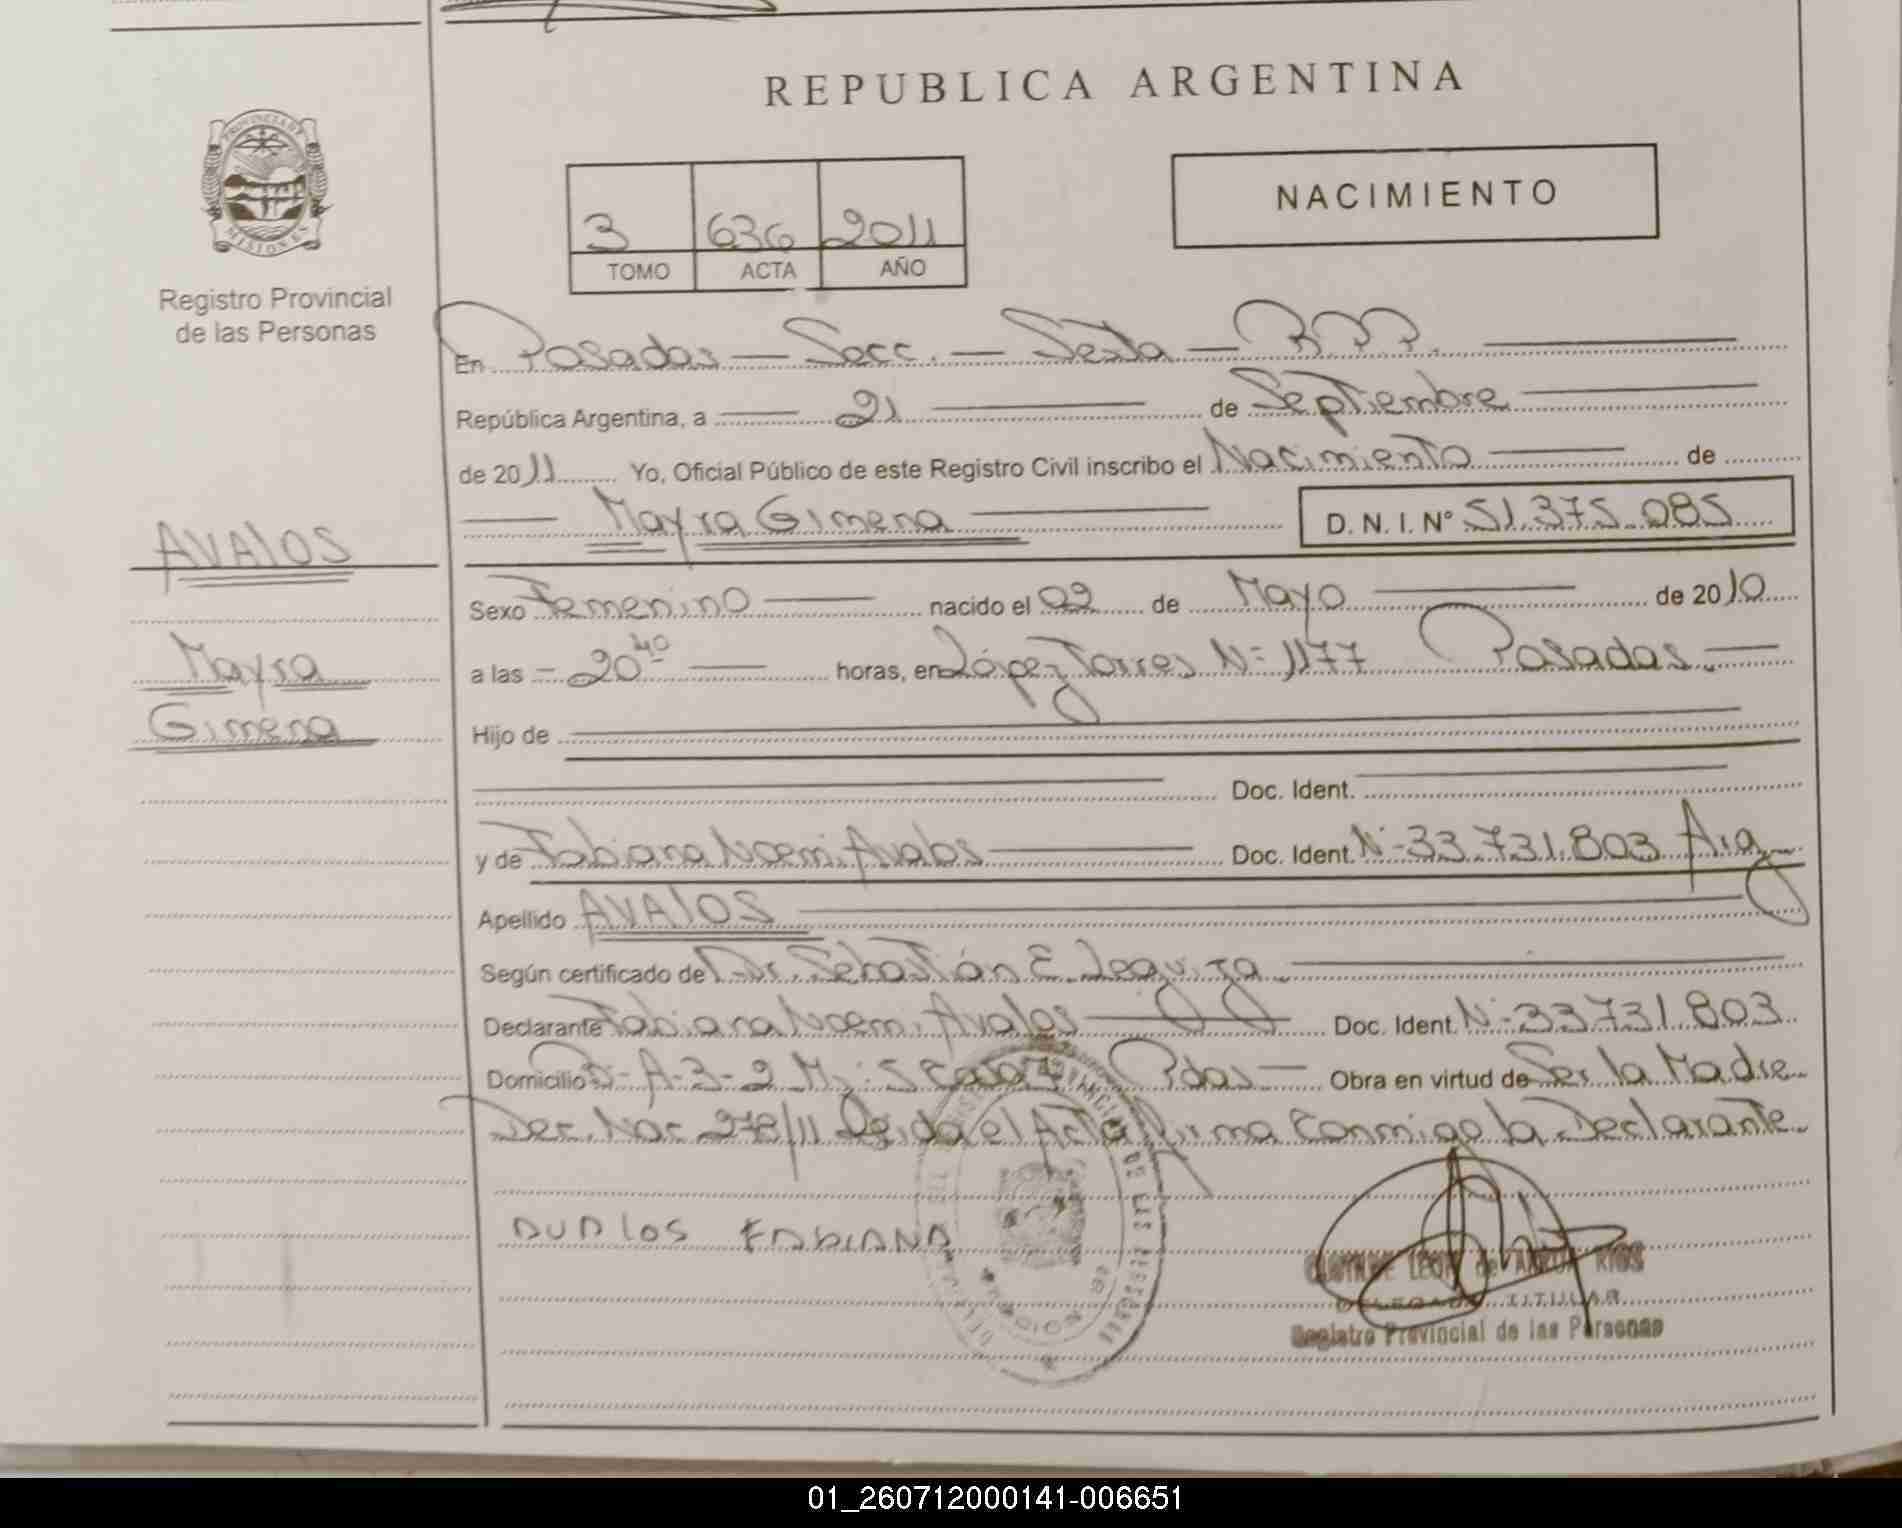 REPUBLICA ARGENTINA
PROVINCIA DE
MISIONES
Registro Provincial
de las Personas
NACIMIENTO
3 636 2011
TOMO ACTA AÑO
En Posadas — Secc. — Sexta — R.P.P.
República Argentina, a 21 de Septiembre
de 2011 Yo, Oficial Público de este Registro Civil inscribo el Nacimiento de
Mayra Gimena D. N. I. N° 51.375.085
AVALOS
Mayra
Gimena
Sexo Femenino nacido el 02 de Mayo de 2010
a las 20 40 horas, en López Torres N° 1177 Posadas.
Hijo de
Doc. Ident.
y de Fabiana Noemi Avalos Doc. Ident. N° 33.731.803 Arg
Apellido AVALOS
Según certificado de Dr. Sebastián E.
Declarante Fabiana Noemi Avalos Doc. Ident. N° 33731.803
Domicilio Pdas Obra en virtud de Ser la Madre
Dec. Nac 278/11 Leida el Acta firma Conmigo la Declarante.
AVALOS FABIANA
LEON de RIOS
DELEGADA TITULAR
Registro Provincial de las Personas
01_260712000141-006651